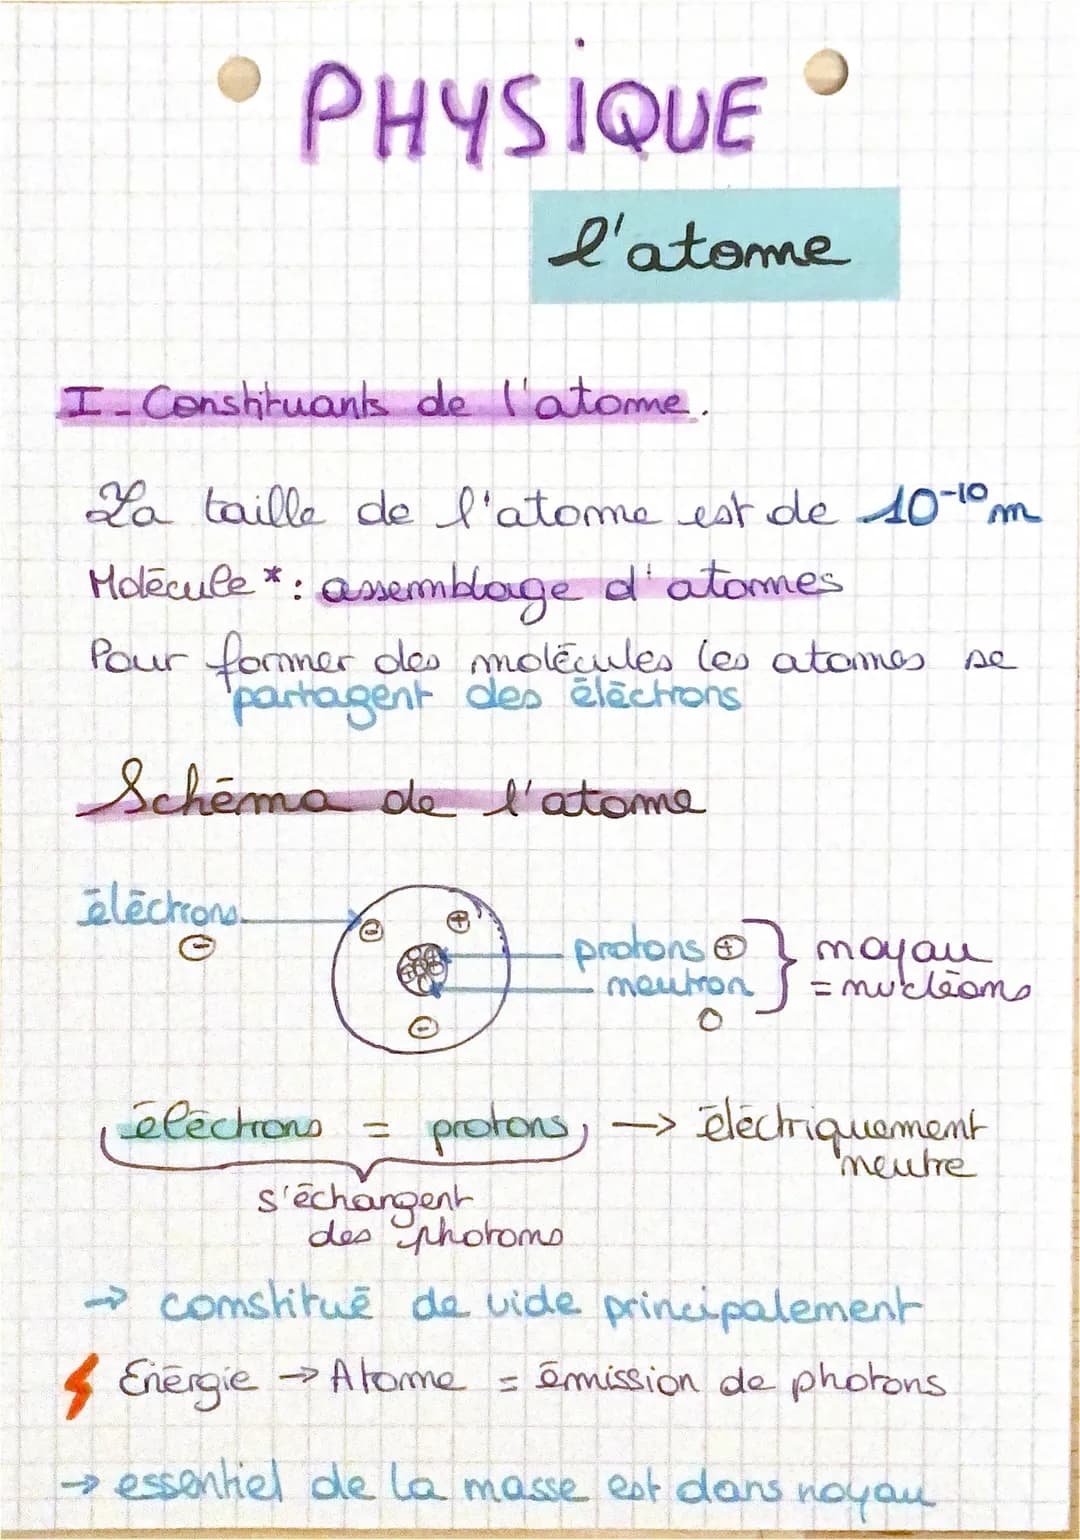 PHYSIQUE
l'atome
I - Constituants de l'atome.
La taille de l'atome est de 10⁻¹⁰ m
Molécule * : assemblage d'atomes
Pour former des molécules les atomes se
partagent des éléctrons
Schéma de l'atome
éléctrons
⊖
⊖ ⊕
⊖
protons ⊕
neutron
O
} noyau
= nucléons
éléctrons = protons → éléctriquement
neutre
s'échangent
des photons
→ constitué de vide principalement
Énérgie → Atome = émission de photons
→ essentiel de la masse est dans noyau